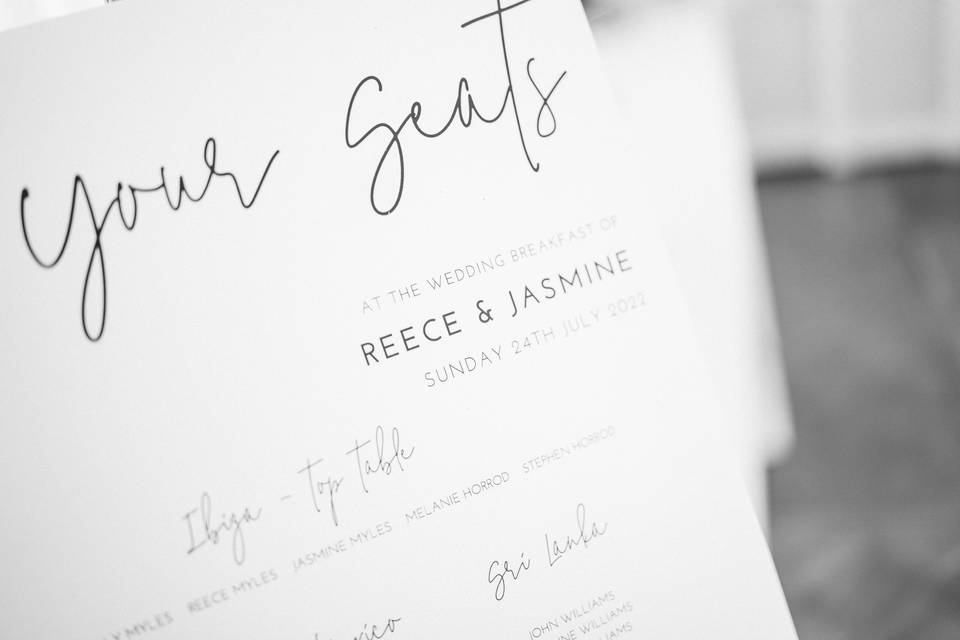 Your Seats
AT THE WEDDING BREAKFAST OF
REECE & JASMINE
SUNDAY 24TH JULY 2022
Ibiza - Top Table
MYLES REECE MYLES JASMINE MYLES MELANIE HORROD STEPHEN HORROD
Sri Lanka
JOHN WILLIAMS
WILLIAMS